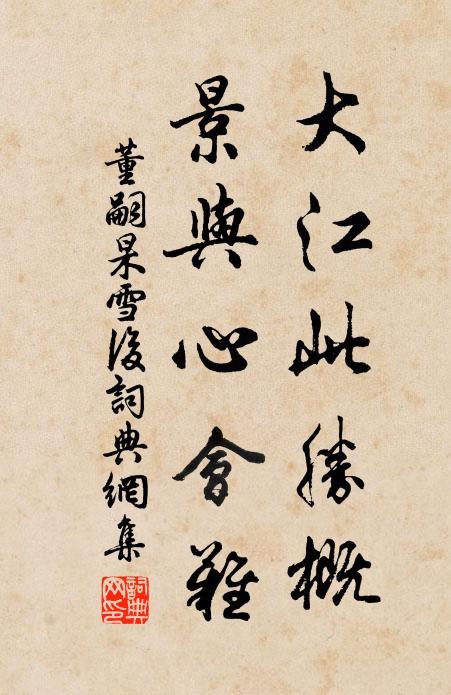 大江此勝概
景與心會難
董嗣杲雪後詞典網集
詞典網印